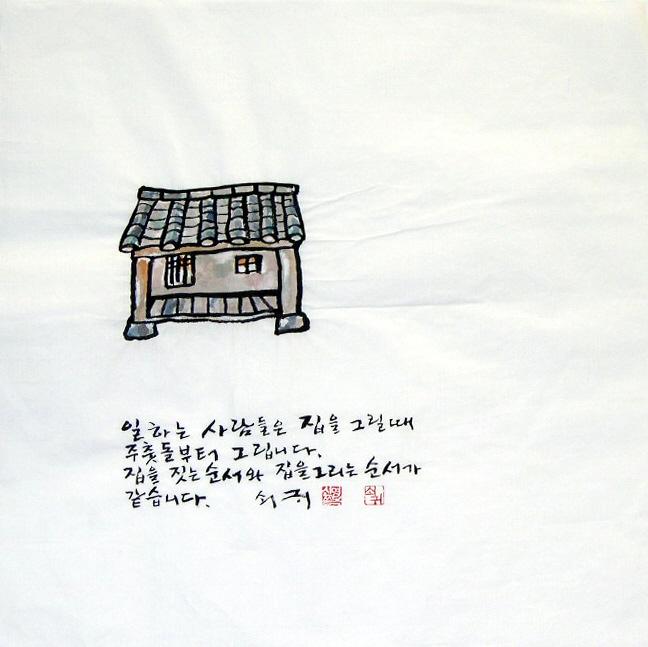 일하는 사람들은 집을 그릴때
주춧돌부터 그립니다.
집을 짓는순서와 집을그리는 순서가
같습니다.